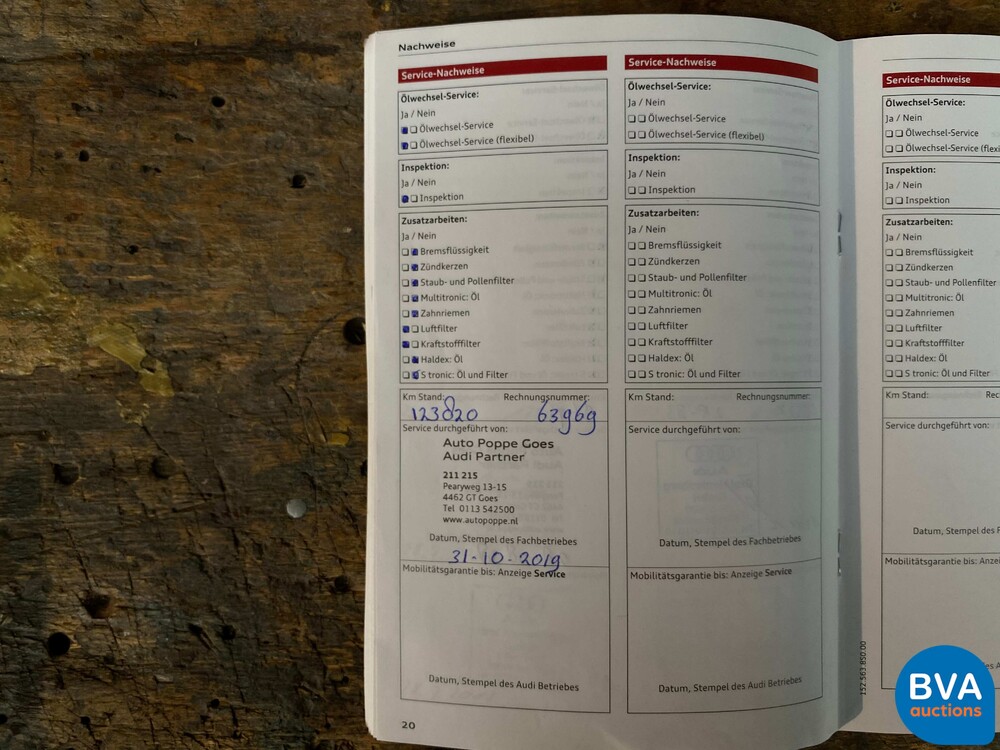 Nachweise
Service-Nachweise
Ölwechsel-Service:
Ja / Nein
Ölwechsel-Service
Ölwechsel-Service (flexibel)
Inspektion:
Ja / Nein
Inspektion
Zusatzarbeiten:
Ja / Nein
Bremsflüssigkeit
Zündkerzen
Staub- und Pollenfilter
Multitronic: Öl
Zahnriemen
Luftfilter
Kraftstofffilter
Haldex: Öl
S tronic: Öl und Filter
Km Stand: Rechnungsnummer:
123020 63969
Service durchgeführt von:
Auto Poppe Goes
Audi Partner
211 215
Pearyweg 13-15
4462 GT Goes
Tel 0113 542500
www.autopoppe.nl
Datum, Stempel des Fachbetriebes
31-10-2019
Mobilitätsgarantie bis: Anzeige Service
Datum, Stempel des Audi Betriebes
20
Service-Nachweise
Ölwechsel-Service:
Ja / Nein
Ölwechsel-Service
Ölwechsel-Service (flexibel)
Inspektion:
Ja / Nein
Inspektion
Zusatzarbeiten:
Ja / Nein
Bremsflüssigkeit
Zündkerzen
Staub- und Pollenfilter
Multitronic: Öl
Zahnriemen
Luftfilter
Kraftstofffilter
Haldex: Öl
S tronic: Öl und Filter
Km Stand: Rechnungsnummer:
Service durchgeführt von:
Datum, Stempel des Fachbetriebes
Mobilitätsgarantie bis: Anzeige Service
Datum, Stempel des Audi Betriebes
152.563.850.00
Service-Nachweise
Ölwechsel-Service:
Ja / Nein
Ölwechsel-Service
Ölwechsel-Service (flexi
Inspektion:
Ja / Nein
Inspektion
Zusatzarbeiten:
Ja / Nein
Bremsflüssigkeit
Zündkerzen
Staub- und Pollenfilter
Multitronic: Öl
Zahnriemen
Luftfilter
Kraftstofffilter
Haldex: Öl
S tronic: Öl und Filter
Km Stand: Rec
Service durchgeführt von:
Datum, Stempel des F
Mobilitätsgarantie bis: Anze
BVA
auctions